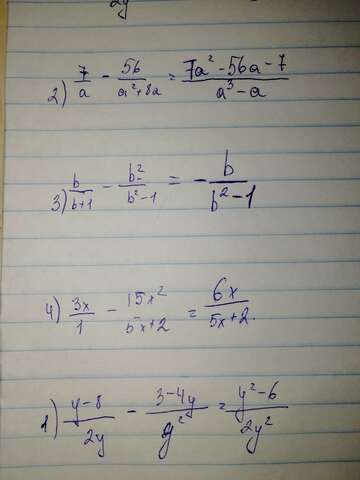 2y
2) 7/a - 56/(a²+8a) = (7a²-56a-7)/(a³-a)
3) b/(b+1) - b²/(b²-1) = -b/(b²-1)
4) 3x/1 - 15x²/(5x+2) = 6x/(5x+2).
1) (y-8)/2y - (3-4y)/y² = (y²-6)/2y²